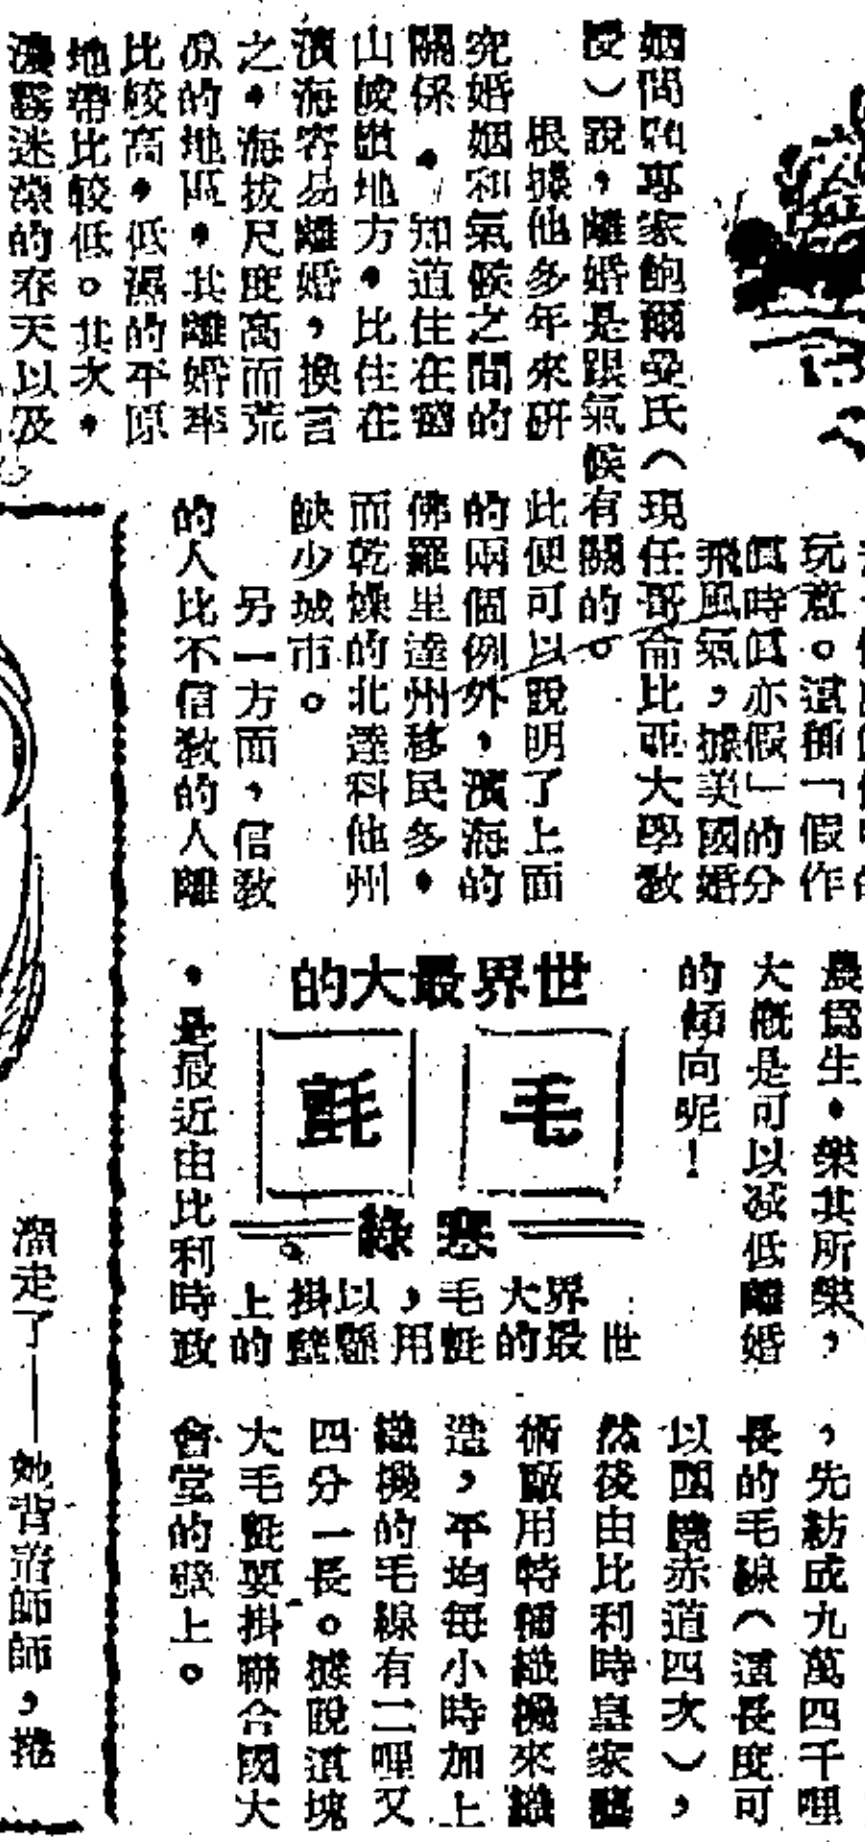 玩意。這種「假作
眞時眞亦假」的分
飛風氣，據美國婚
姻問題專家鮑爾曼氏（現任哥倫比亞大學敎
授）說，離婚是跟氣候有關的。
根據他多年來研
究婚姻和氣候之間的
關係，知道住在窮
山峻嶺地方，比住在
濱海容易離婚，換言
之，海拔尺度高而荒
原的地區，其離婚率
比較高，低濕的平原
地帶比較低。其次，
濃霧迷濛的春天以及
此便可以說明了上面
的兩個例外，濱海的
佛羅里達州移民多，
而乾燥的北達科他州
缺少城市。
另一方面，信敎
的人比不信敎的人離
農爲生，樂其所樂，
大概是可以減低離婚
的傾向呢！
世界最大的
毛氈
塞綠
世
界最
大的
毛氈
，用
以懸
掛壁
上的
，是最近由比利時政
，先紡成九萬四千哩
長的毛線（這長度可
以圍繞赤道四次），
然後由比利時皇家藝
術廠用特種織機來織
造，平均每小時加上
織機的毛線有二哩又
四分一長。據說這塊
大毛氈要掛聯合國大
會堂的壁上。
溜走了——她背着師師，捲